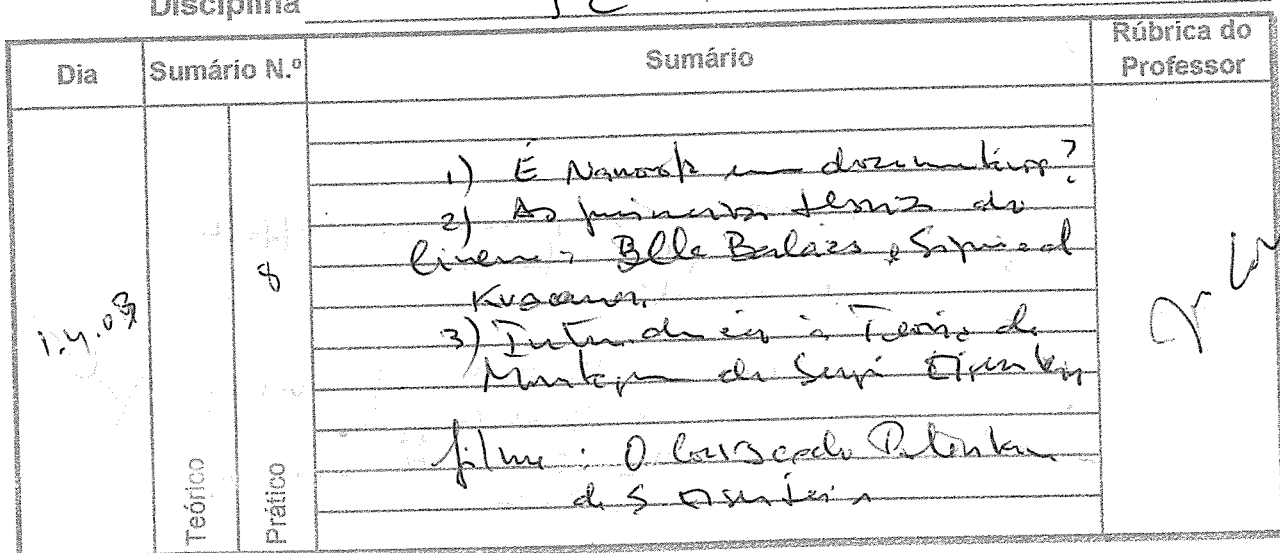 Disciplina
Dia
Sumário N.º
Sumário
Rúbrica do
Professor
1) É Nanook um documentário?
2) As primeiras teorias do
Cinema: Bela Balázs e Siegfried
Kracauer.
3) Introdução à Teoria da
Montagem de Sergei Eisenstein
filme: O Couraçado Potemkin
de S. Eisenstein
8
Teórico
Prático